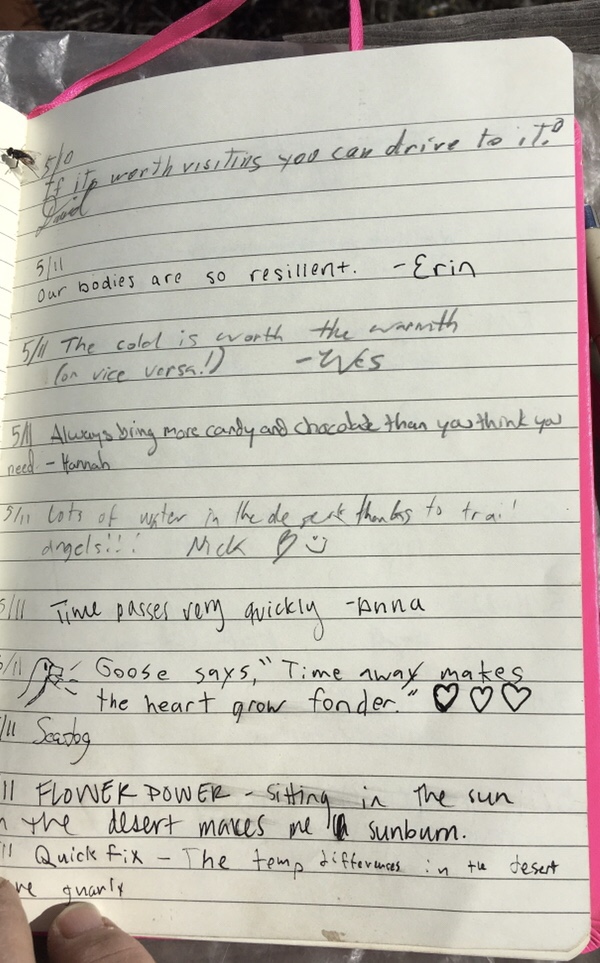 5/10
If its worth visiting you can drive to it!
David
5/11
Our bodies are so resillent. - Erin
5/11 The cold is worth the warmth
(or vice versa!) - Wes
5/11 Always bring more candy and chocolate than you think you
need - Hannah
5/11 Lots of water in the desert thanks to trail
angels!!! Nick
5/11 Time passes very quickly - Anna
5/11 Goose says, "Time away makes
the heart grow fonder."
11 Seadog
11 FLOWER POWER - Sitting in the sun
the desert makes me sunburn.
11 Quick fix - The temp differences in the desert
gnarly